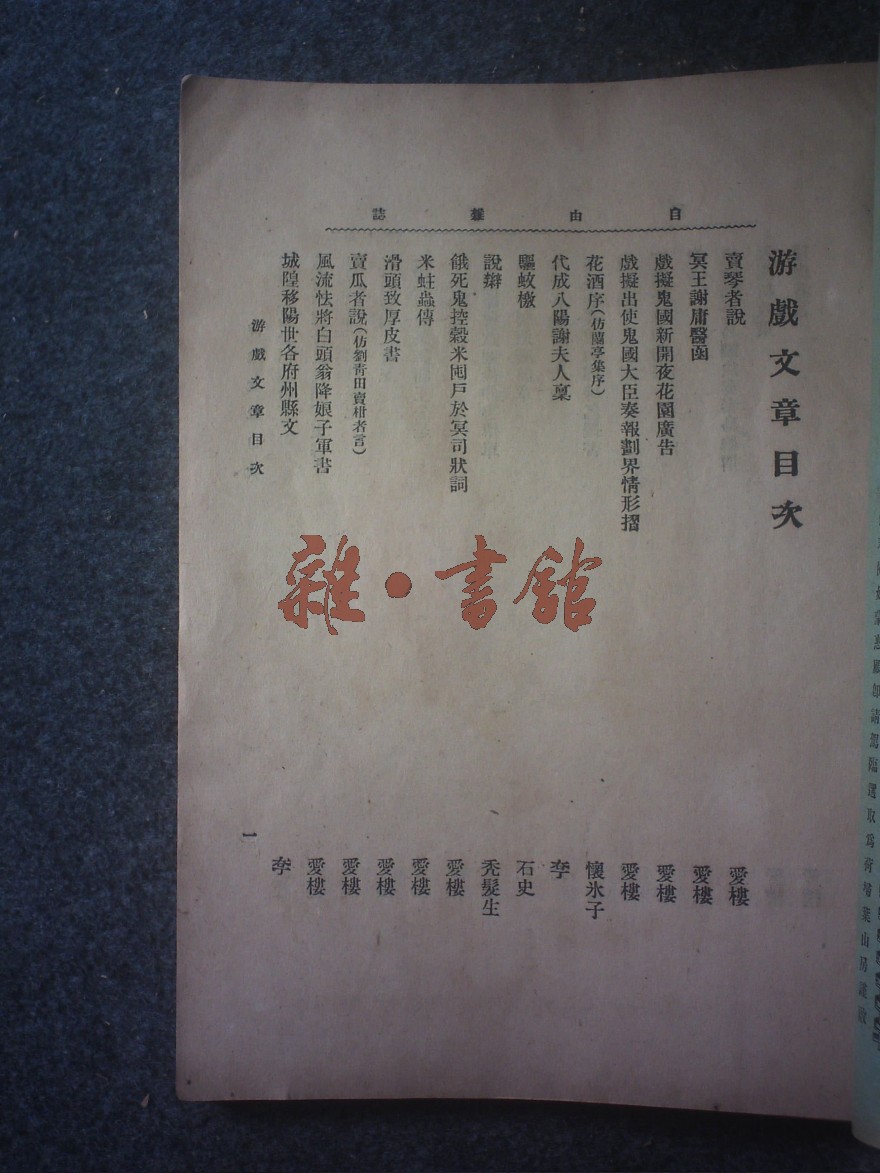 自由雜誌
游戲文章目次
賣琴者說 愛樓
冥王謝庸醫函 愛樓
戲擬鬼國新開夜花園廣告 愛樓
戲擬出使鬼國大臣奏報劃界情形摺 愛樓
花酒序(仿蘭亭集序) 懷氷子
代成八陽謝夫人稟
驅蚊檄 石史
說辮 禿髮生
餓死鬼控穀米囤戶於冥司狀詞 愛樓
米蛀蟲傳 愛樓
滑頭致厚皮書 愛樓
賣瓜者說(仿劉靑田賣柑者言) 愛樓
風流怯將白頭翁降娘子軍書 愛樓
城隍移陽世各府州縣文
游戲文章目次
一
雜·書館